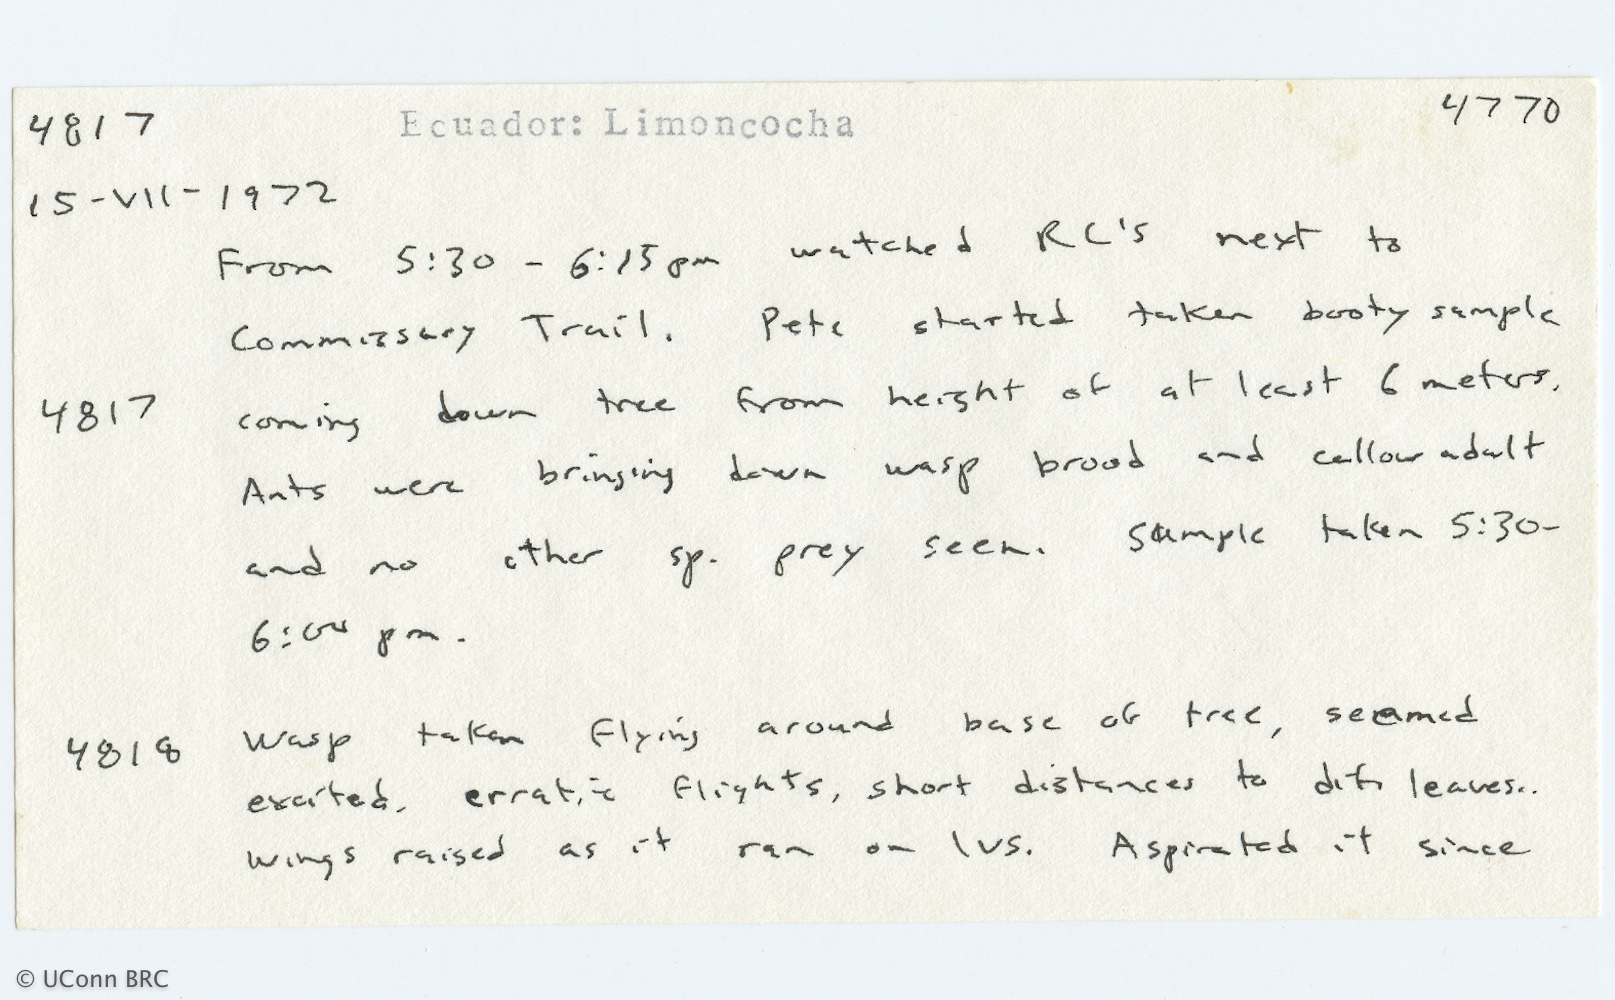 4817 Ecuador: Limoncocha 4770
15-VII-1972
From 5:30 - 6:15 pm watched RC's next to
Commissary Trail. Pete started taken booty sample
4817 coming down tree from height of at least 6 meters.
Ants were bringing down wasp brood and callow adult
and no other sp. prey seen. Sample taken 5:30-
6:00 pm.
4818 Wasp taken flying around base of tree, seemed
excited. erratic flights, short distances to dif. leaves..
wings raised as it ran on lvs. Aspirated it since
© UConn BRC